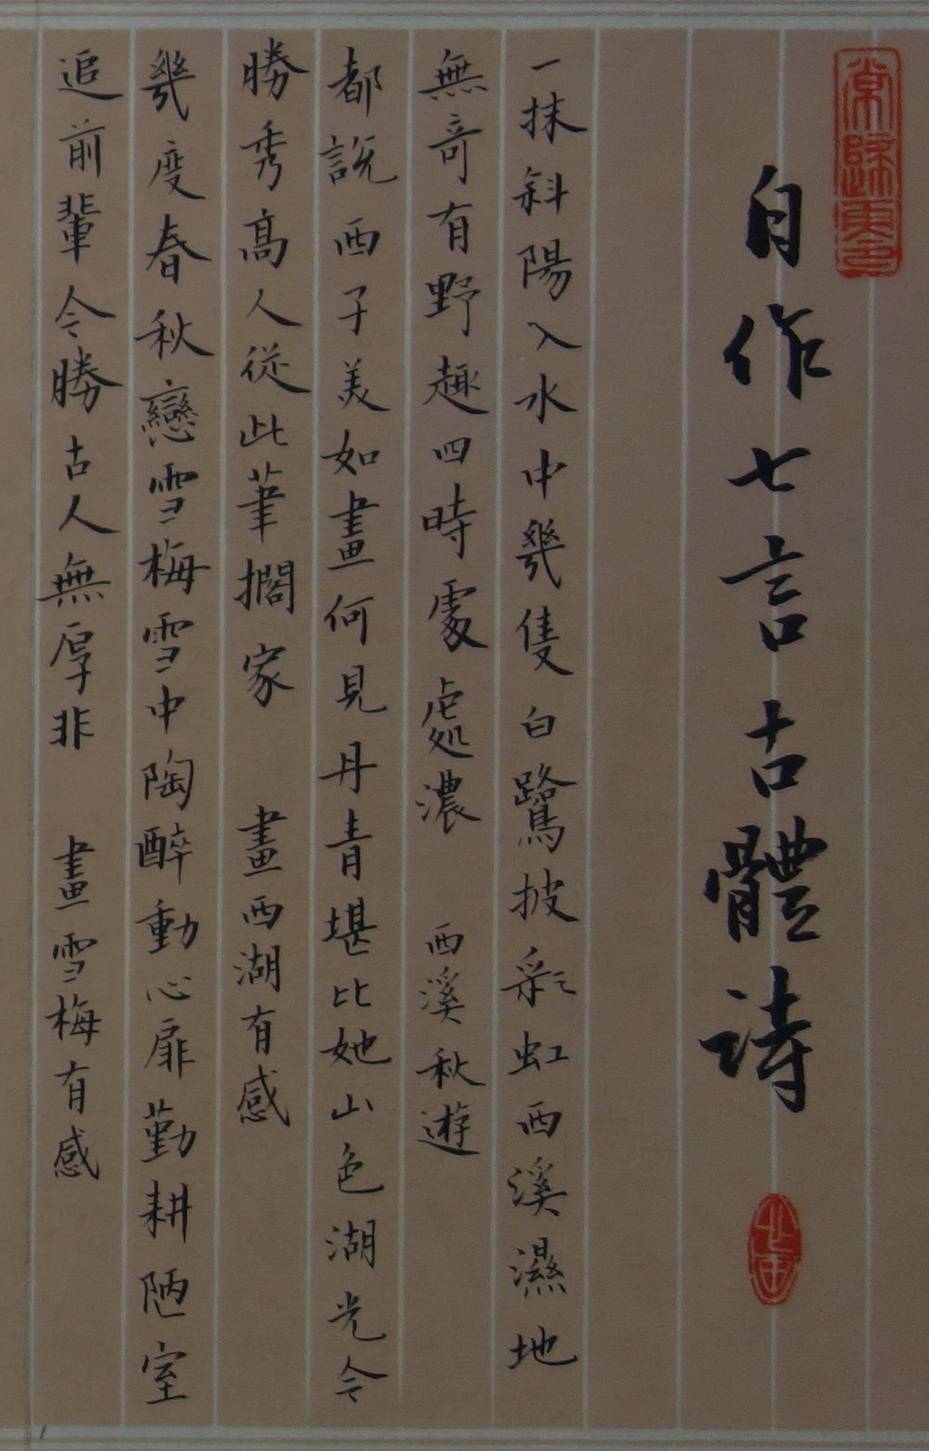 自作七言古體詩
一抹斜陽入水中幾隻白鷺披彩虹西溪濕地
無奇有野趣四時處處濃 西溪秋遊
都說西子美如畫何見丹青堪比她山色湖光令
勝秀高人從此筆擱家 畫西湖有感
幾度春秋戀雪梅雪中陶醉動心扉勤耕陋室
追前輩令勝古人無厚非 畫雪梅有感